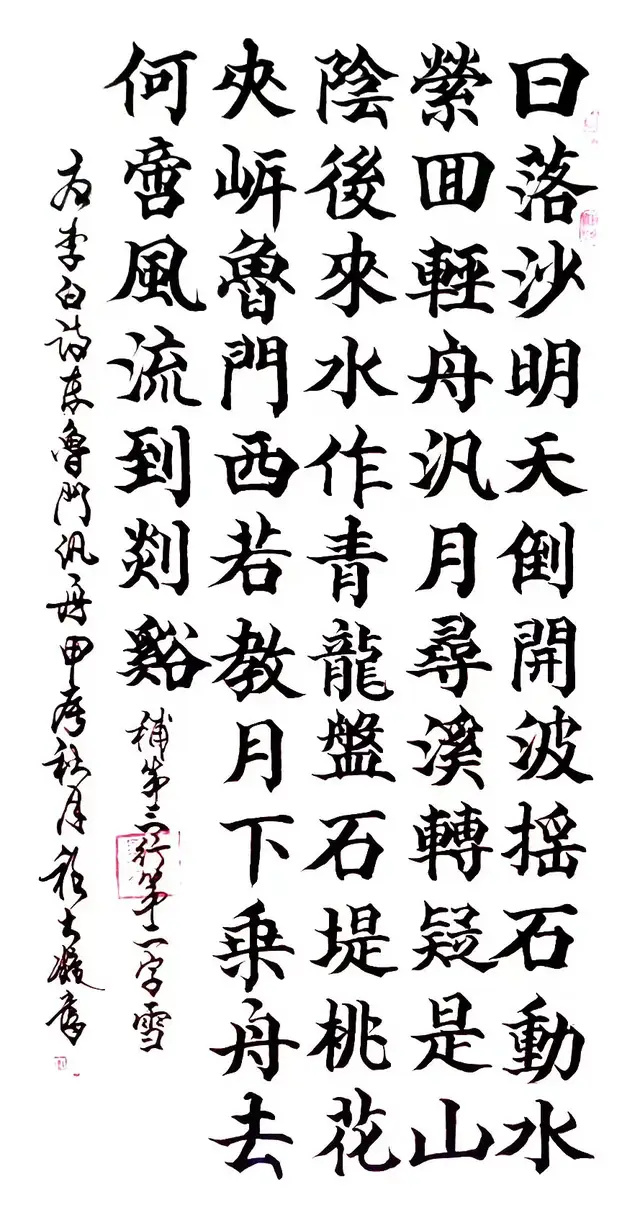 日落沙明天倒開波摇石動水
縈回輕舟汎月尋溪轉疑是山
陰後來水作青龍盤石堤桃花
夾岍魯門西若教月下乗舟去
何啻風流到剡谿
補第三行第二字雪
右李白詩東魯門汎舟甲辰秋月書